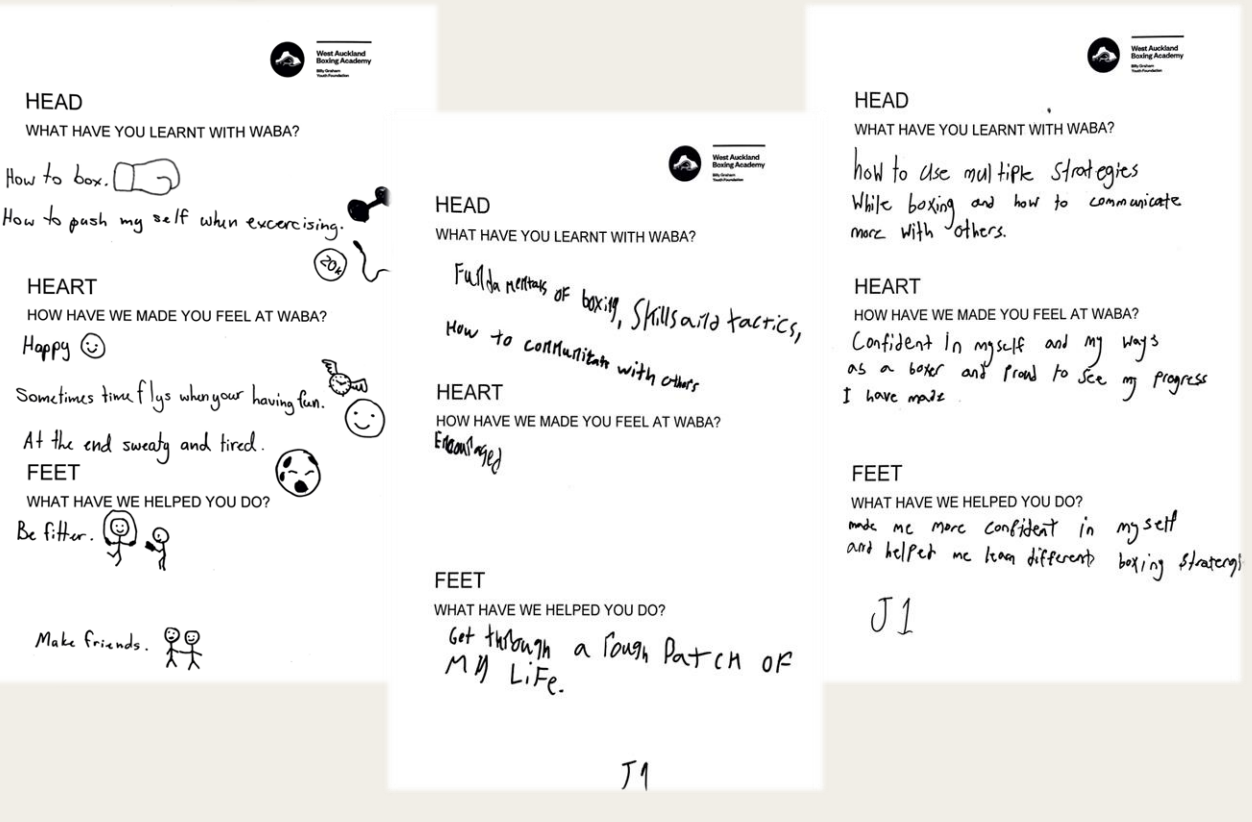 West Auckland
Boxing Academy
Billy Graham
Youth Foundation
HEAD
WHAT HAVE YOU LEARNT WITH WABA?
How to box.
How to push my self when excercising.
20k
HEART
HOW HAVE WE MADE YOU FEEL AT WABA?
Happy
Sometimes time flys when your having fun.
At the end sweaty and tired.
FEET
WHAT HAVE WE HELPED YOU DO?
Be fitter.
Make friends.
West Auckland
Boxing Academy
Billy Graham
Youth Foundation
HEAD
WHAT HAVE YOU LEARNT WITH WABA?
Fundamentals of boxing, Skills and tactics,
How to communitate with others
HEART
HOW HAVE WE MADE YOU FEEL AT WABA?
Encouraged
FEET
WHAT HAVE WE HELPED YOU DO?
Get through a rough Patch OF
My LiFe.
J1
West Auckland
Boxing Academy
Billy Graham
Youth Foundation
HEAD
WHAT HAVE YOU LEARNT WITH WABA?
how to use multiple strategies
While boxing and how to communicate
more with others.
HEART
HOW HAVE WE MADE YOU FEEL AT WABA?
Confident In myself and my ways
as a boxer and proud to see my progress
I have made.
FEET
WHAT HAVE WE HELPED YOU DO?
made me more confident in myself
and helped me learn different boxing
J1